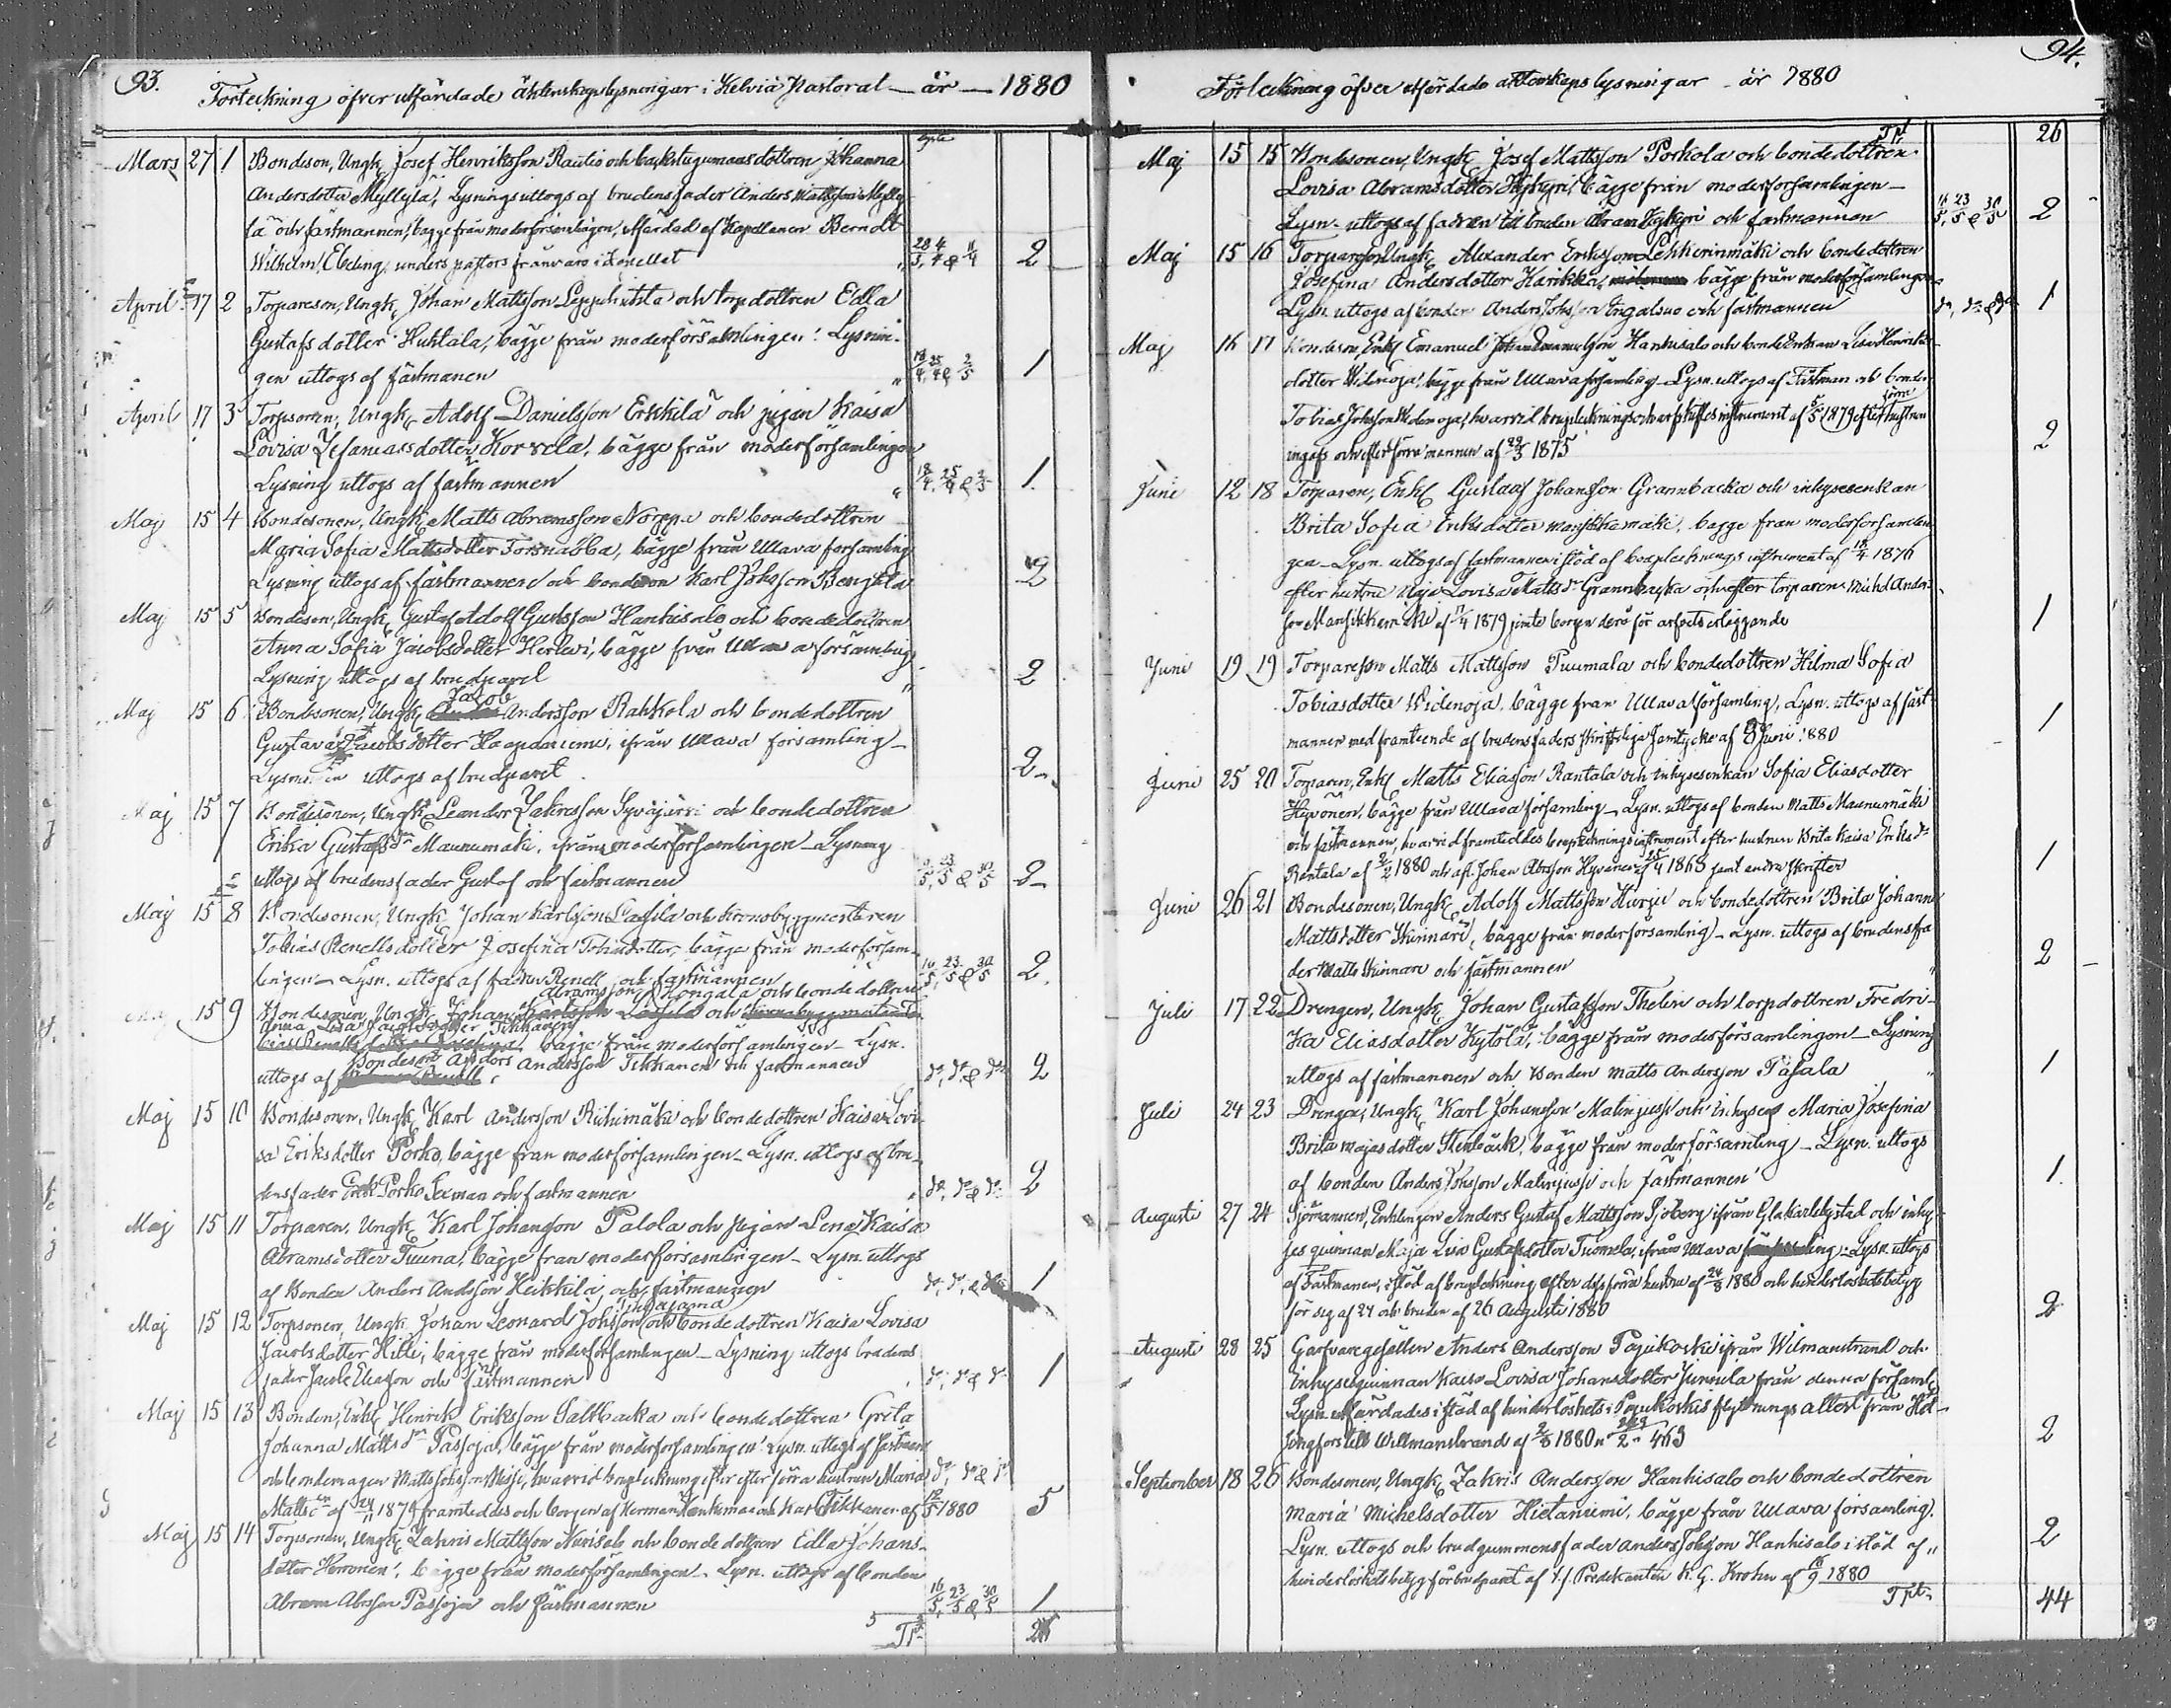 93.
Förteckning öfver utfärdade äktenskapslysningar i Kelviå Pastorat — år — 1880
Mars 27 1 Bondeson, Ungk, Josef Henriksson Rautio och backstugumansdottren Johanna
Andersdotter Myllylä, Lysnings uttogs af brudens fader Anders Mattsson Mylly-
lä och fästmannen, bägge från moderförsamlingen, utfärdad af Kapellanen Berndt
Wilhelm Ebeling, under pastors frånvaro i Kapellet 28/3, 4/4 & 11/4 2
April 17 2 Torpareson, Ungk, Johan Mattsson Leppihuhta och torpdottren Edla
Gustafsdotter Huhtala, bägge från moderförsamlingen: Lysnin-
gen uttogs af fästmanen 18/4, 25/4 & 2/5 1
April 17 3 Torpsonen, Ungk, Adolf Danielsson Erkkilä och pigan Kaisa
Lovisa Zefaniasdotter Korvela, bägge från moderförsamlingen
Lysning uttogs af fästmannen 18/4, 25/4 & 2/5 1.
Maj 15 4 Bondesonen, Ungk, Matts Abramsson Norppa och bondedottren
Maria Sofia Mattsdotter Torsnabba, bägge från Ullava församling
Lysning uttogs af fästmannen och bonden Karl Johsson Bengtila 2
Maj 15 5 Bondeson, Ungk, Gustaf Adolf Gustsson Hanhisalo och bondedottren
Anna Sofia Jacobsdotter Herlevi, bägge från Ullava församling
Lysning uttogs af brudparet 2
Maj 15 6 Bondesonen, Ungk, Jacob Andersson Rahkola och bondedottren
Gustava Jacobsdotter Haapaniemi, ifrån Ullava församling —
Lysnin uttogs af brudparet 2
Maj 15 7 Bondesonen, Ungk, Leander Zakrisson Syväjärvi och bondedottren
Erika Gustafs dr Maunumäki, ifrån moderförsamlingen — Lysning
uttogs af brudens fader Gustaf och fästmannen 16/5, 23/5 & 30/5 2
Maj 15 8 Bondesonen, Ungk, Johan Karlsson Lassila och Kronobyggmästaren
Tobias Renells dotter Josefina Tobiasdotter, bägge från moderförsam-
lingen — Lysn. uttogs af fadren Renell och fästmannen 16/5, 23/5 & 30/5 2.
Abramsson Kongala och bondedottren
Maj 15 9 Bondesonen, Ungk, Johan Karlsson Lassila och
Anna Lisa Jacobsdotter Tikkanen
bägge från moderförsamlingen — Lysn.
uttogs af Bondeson Anders Andersson Tikkanen och fästmannen do, do & do 2
Maj 15 10 Bondesonen, Ungk, Karl Andersson Riihimäki och bondedottren Kaisa Lovi-
sa Eriksdotter Porko, bägge från moderförsamlingen — Lysn. uttogs af bru-
dens fader Erik Porko Sexman och fästmannen do, do & do 2
Maj 15 11 Torparen, Ungk, Karl Johansson Palola och pigan Lena Kaisa
Abramsdotter Tuuna, bägge från moderförsamlingen — Lysn. uttogs
af Bonden Anders Andsson Heikkilä och fästmannen do, do, & do 1
Maj 15 12 Torpsonen, Ungk, Johan Leonard Johsson och bondedottren Kaisa Lovisa
Jacobsdotter Hilli, bägge från moderförsamlingen — Lysning uttogs brudens
fader Jacob Eliasson och fästmannen do, do & do 1
Maj 15 13 Bonden, Enkl, Hinrik Eriksson Sallbacka och bondedottren Greta
Johanna Matts dr Passoja, bägge från moderförsamlingen Lysn. uttogs af fästmannen
och bondemågen Matts Johsson Missi, hvarvid bouppteckning efter förra hustrun Maria do, do & do
Matts dr af 24/11 1874 framteddes och borgen af Herman Honkimaa och Karl Tikkanen af 12/5 1880 5
Maj 15 14 Torpsonen, Ungk, Zakris Mattsson Nurisalo och bondedottren Edla Johans-
dotter Herronen, bägge från moderförsamlingen — Lysn. uttogs af bonden
Abram Abrsson Passoja och fästmannen 16/5, 23/5 & 30/5 1
Tpt 26
94.
Förteckning öfver utfärdade äktenskapslysningar — år 1880
Tpt 26
Maj 15 15 Bondesonen, Ungk, Josef Mattsson Porkola och bondedottren
Lovisa Abramsdotter Hyhyri, bägge från moderförsamlingen —
Lysn. uttogs af fadren till bruden Abram Hyhyri och fästmannen 16/5, 23/5 & 30/5 2
Maj 15 16 Torpareson Ungk, Alexander Eriksson Lehkerinmäki och bondedottren
Josefina Andersdotter Harikka, bägge från moderförsamlingen
Lysn. uttogs af bonden Anders Johsson Engalsuo och fästmannen do, do & do 1
Maj 16 17 Bondeson, Enkl, Emanuel Hanhisalo och bonde Enkan Lisa Henriks-
dotter Widenoja, bägge från Ullava församling — Lysn. uttogs af Fästman och bonden
Tobias Johsson Widenoja, hvarvid bouppteckningsocharfskiftesinstrument af 5/5 1879 efter förra hustrun
ingafs och efter förra mannen af 29/3 1875 2
Juni 12 18 Torparen, Enkl, Gustaf Johansson Grannbacka och inhysesenkan
Brita Sofia Eriksdotter Mansikkamäki, bägge från moderförsamlin-
gen — Lysn. uttogs af fästmannen i stöd af bouppteckningsinstrument af 18/4 1876
efter hustru Maja Lovisa Matts dr Grannbacka och efter torparen Michel Anders-
son Mansikkamäki af 17/4 1879 jemte borgen derå för arfvets erläggande 1
Juni 19 19 Torpareson Matts Mattsson Puumala och bondedottren Hilma Sofia
Tobiasdotter Widenoja, bägge från Ullava församling, Lysn. uttogs af fäst-
mannen med framteende af brudens faders skriftliga samtycke af 8 Juni 1880 1
Juni 25 20 Torparen, Enkl, Matts Eliasson Rantala och inhysesenkan Sofia Eliasdotter
Hyvönen, bägge från Ullava församling — Lysn. uttogs af bonden Matts Maunumäki
och fästmannen, hvarvid framteddes bouppteckningsinstrument efter hustrun Brita Kaisa Eriks dr
Rantala af 2/2 1880 och afl. Johan Abrsson Hyvönen af 25/4 1868 samt andra skrifter 1
Juni 26 21 Bondesonen, Ungk, Adolf Mattsson Hirju och bondedottren Brita Johanna
Mattsdotter Skinnari, bägge från moderförsamling — Lysn. uttogs af brudens fa-
der Matts Skinnare och fästmannen 2
Juli 17 22 Drengen, Ungk, Johan Gustafsson Thelin och torpdottren Fredri-
ka Eliasdotter Kytölä, bägge från moderförsamlingen — Lysning
uttogs af fästmannen och Bonden Matts Andersson Päsala 1
Juli 24 23 Drengen, Ungk, Karl Johansson Matinjussi och inhyses Maria Josefina
Brita Majasdotter Stenbäck, bägge från moderförsamling — Lysn. uttogs
af bonden Anders Johsson Matinjussi och fästmannen 1.
Augusti 27 24 Sjömannen, Enklingen Anders Gustaf Mattsson Sjöberg ifrån Glakarleby stad och inhy-
ses quinnan Maja Lisa Gustafsdotter Tuomela, ifrån Ullava församling — Lysn. uttogs
af Fästmanen, i stöd af bouppteckning efter dess förra hustru af 24/8 1880 och hinderlöshetsbetyg
för sig af 24 och bruden af 26 Augusti 1880 2
Augusti 28 25 Garfvaregesällen Anders Andersson Pajukoski ifrån Wilmanstrand och
Inhysesquinnan Kaisa Lovisa Johansdotter Junnila från denna församl,
Lysn. utfärdades i stöd af hinderlöshets i Pajukoskis flyttningsattest från Hel-
singfors till Willmanstrand af 2/8 1880 n 463 2
September 18 26 Bondesonen, Ungk, Zakris Andersson Hanhisalo och bondedottren
Maria Michelsdotter Hietaniemi, bägge från Ullava församling.
Lysn. uttogs och brudgummens fader Anders Johsson Hanhisalo i stöd af 2
hinderlöshetsbetyg för brudparet af V.f. Predikanten K. G. Krohn af 18/9 1880
Tpt 44